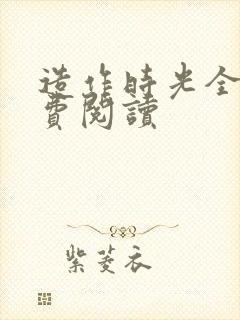 造作時光全
費閱讀
紫菱衣